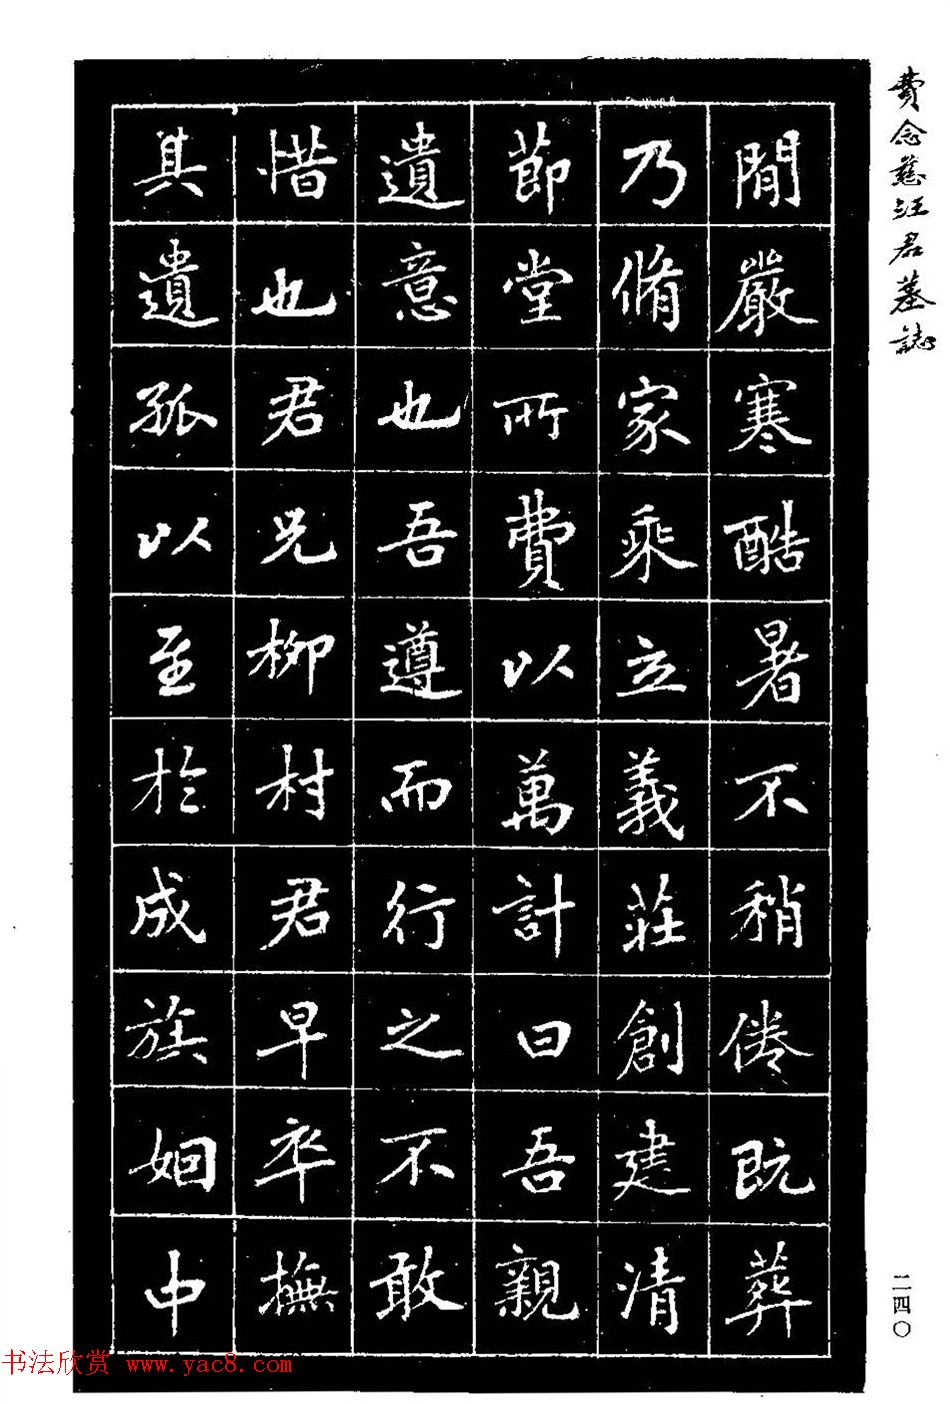 費念慈汪君墓誌
閒嚴寒酷暑不稍倦既葬
乃脩家乘立義莊創建清
節堂所費以萬計曰吾親
遺意也吾遵而行之不敢
惜也君兄柳村君早卒撫
其遺孤以至於成族姻中
二四〇
书法欣赏 www.yac8.com